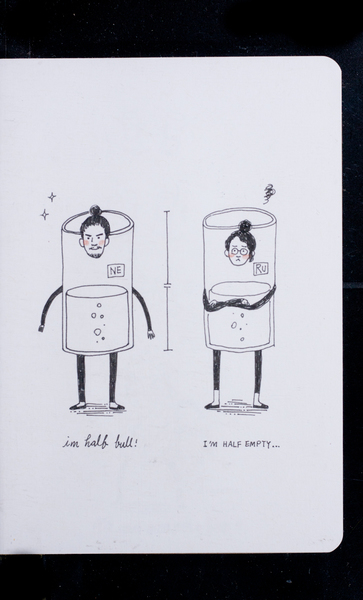 NE
RU
im half full!
I'M HALF EMPTY...